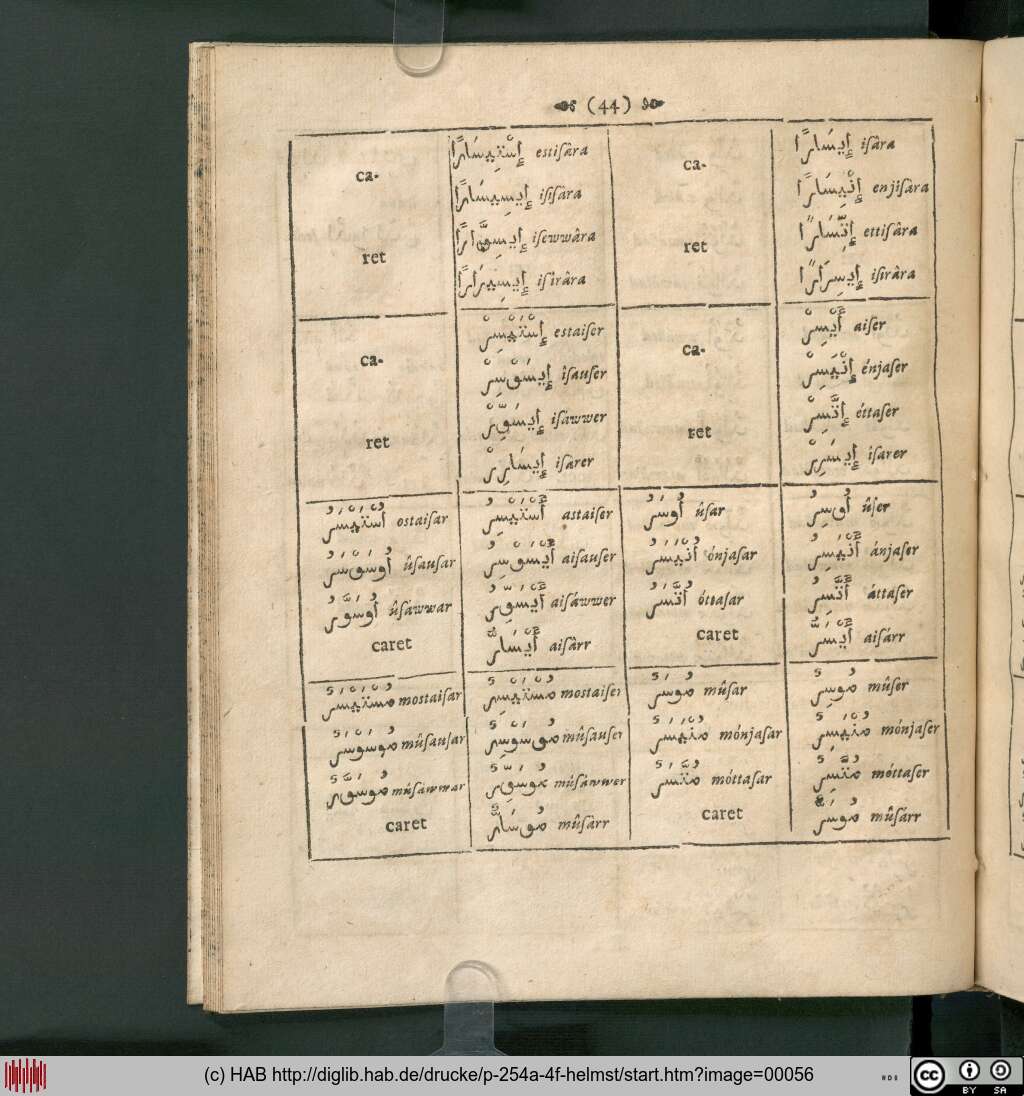 (44)
ca-
ret
إِسْتِيسَارًا estisâra
إِيسِيسَارًا isisâra
إِيسِوَّارًا isewwâra
إِيسِيرَارًا isîrâra
ca-
ret
إِيسَارًا isâra
إِنْيِسَارًا enjisâra
إِتِّسَارًا ettisâra
إِيسِرَارًا isirâra
ca-
ret
إِسْتَيْسِرْ estaiser
إِيسَوْسِرْ îsauser
إِيسَوِّرْ isáwwer
إِيسَارِرْ isârer
ca-
ret
أَيْسِرْ aiser
إِنْيَسِرْ énjaser
إِتَّسِرْ éttaser
إِيسَرِرْ ísarer
أُسْتَيْسَرُ ostaisar
أُوسَوْسَرُ ûsausar
أُوسَوَّرُ ûsáwwar
caret
أَسْتَيْسِرُ astaiser
أَيْسَوْسِرُ aisauser
أَيْسَوِّرُ aisáwwer
أَيْسَارُّ aisârr
أُوسَرُ ûsar
أُنْيَسَرُ ónjasar
أُتَّسَرُ óttasar
caret
أُوسِرُ ûser
أَنْيَسِرُ ánjaser
أَتَّسِرُ áttaser
أَيْسَرُّ aisárr
مُسْتَيْسَرٌ mostaisar
مُوسَوْسَرٌ mûsausar
مُوسَوَّرٌ mûsáwwar
caret
مُسْتَيْسِرٌ mostaiser
مُوسَوْسِرٌ mûsauser
مُوسَوِّرٌ músáwwer
مُوسَارٌّ mûsârr
مُوسَرٌ mûsar
مُنْيَسَرٌ mónjasar
مُتَّسَرٌ móttasar
caret
مُوسِرٌ mûser
مُنْيَسِرٌ mónjaser
مُتَّسِرٌ móttaser
مُوسَرٌّ mûsárr
(c) HAB http://diglib.hab.de/drucke/p-254a-4f-helmst/start.htm?image=00056
HAB
cc BY SA